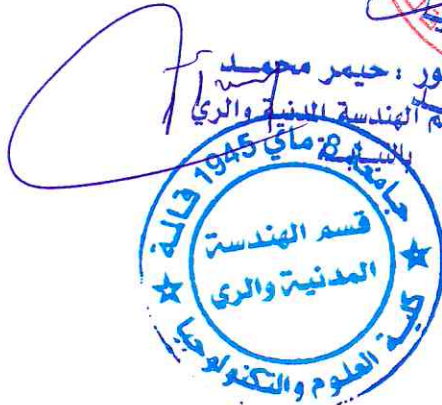 ور : حيمر محمد
م الهندسة المدنية والري
بالنيابة
جامعة 8 ماي 1945 قالمة
قسم الهندسة
المدنية والري
كلية العلوم والتكنولوجيا